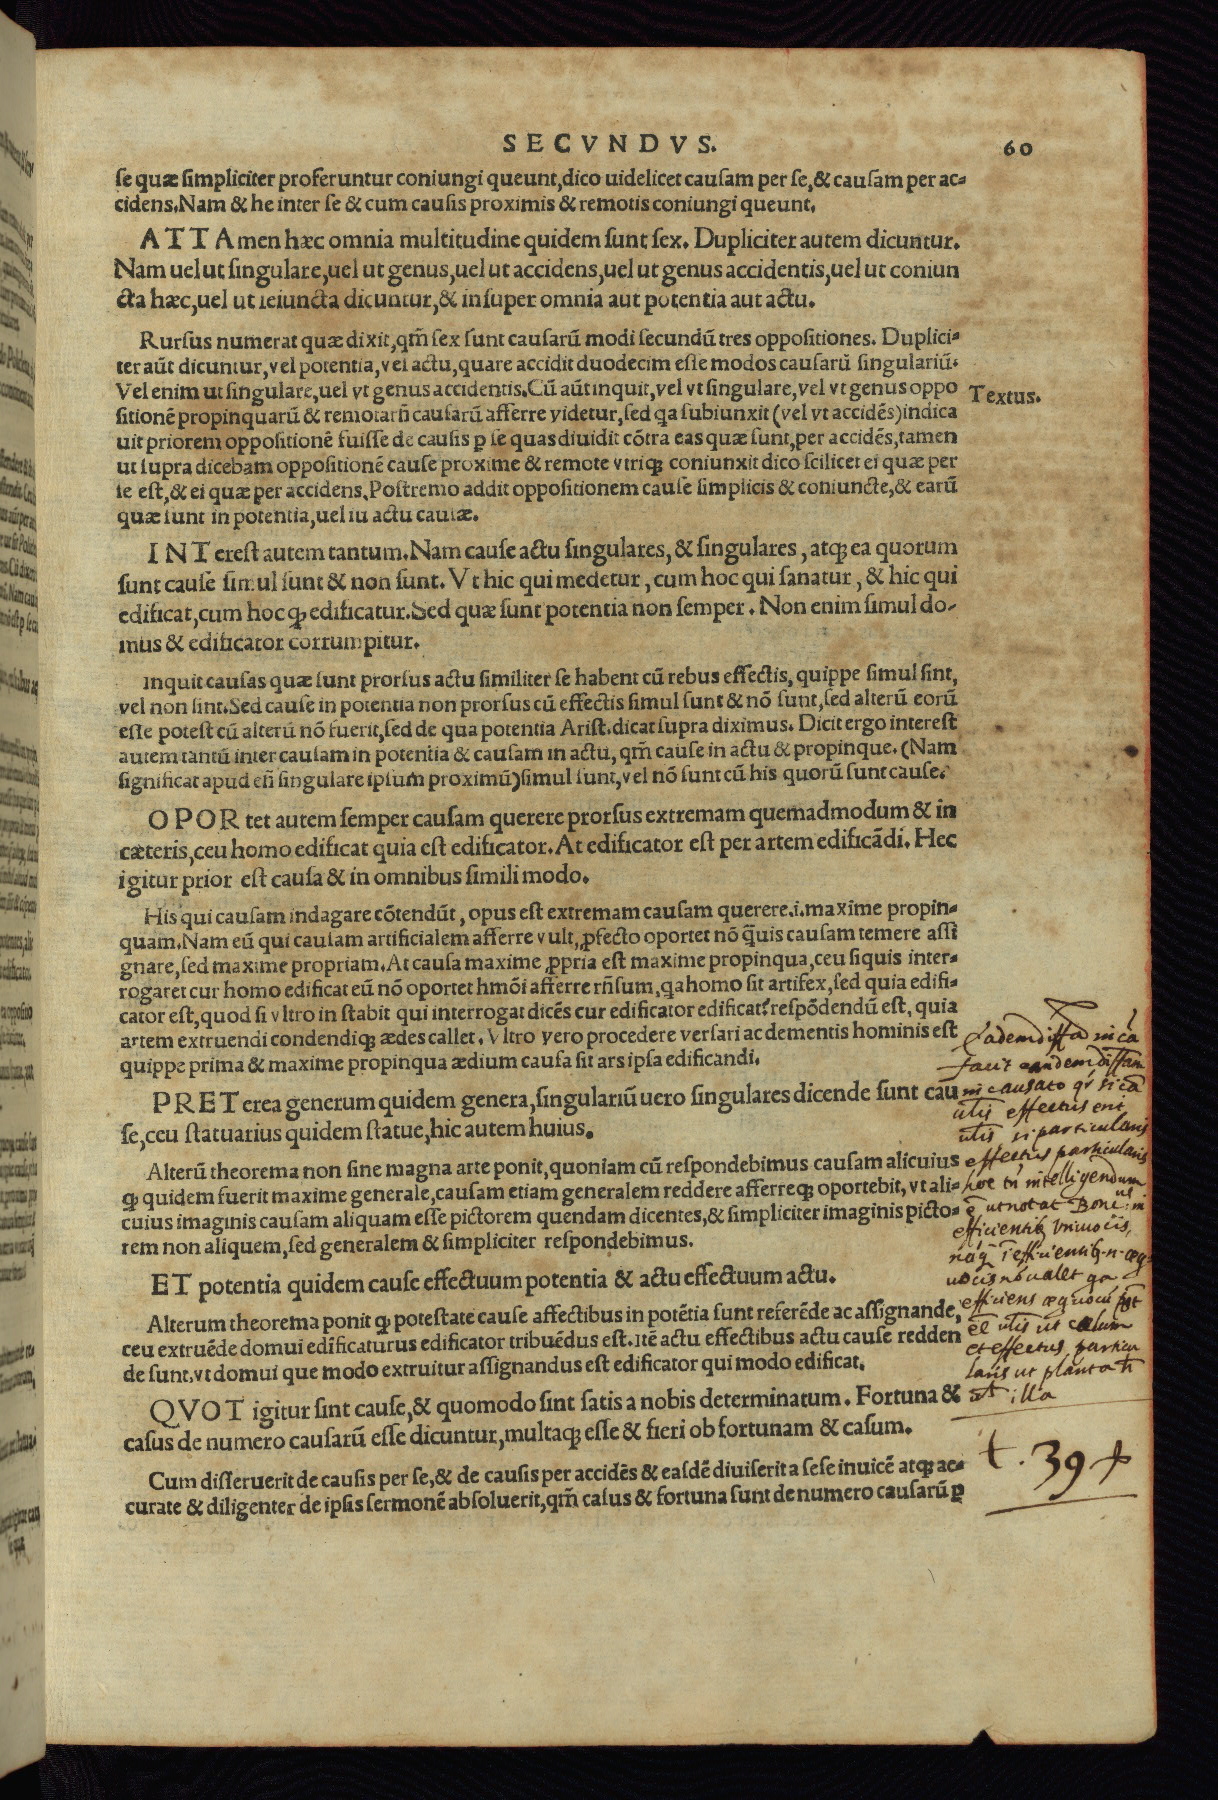 SECVNDVS.
60
se quæ simpliciter proferuntur coniungi queunt,dico uidelicet causam per se,& causam per ac=
cidens.Nam & he inter se & cum causis proximis & remotis coniungi queunt.
ATTAmen hæc omnia multitudine quidem sunt sex. Dupliciter autem dicuntur.
Nam uel ut singulare,uel ut genus,uel ut accidens,uel ut genus accidentis,uel ut coniun
cta hæc,uel ut seiuncta dicuntur,& insuper omnia aut potentia aut actu.
Rursus numerat quæ dixit,qm̃ sex sunt causarũ modi secundũ tres oppositiones. Duplici=
ter aũt dicuntur,vel potentia,vel actu,quare accidit duodecim esse modos causarũ singulariũ.
Vel enim ut singulare,uel vt genus accidentis.Cũ aũt inquit,vel vt singulare,vel vt genus oppo
Textus.
sitionẽ propinquarũ & remotarũ causarũ afferre videtur,sed qa subiunxit (vel vt accidẽs)indica
uit priorem oppositionẽ fuisse de causis ꝑ se quas diuidit cõtra eas quæ sunt,per accidẽs,tamen
ut supra dicebam oppositionẽ cause proxime & remote vtriqꝫ coniunxit dico scilicet ei quæ per
se est,& ei quæ per accidens.Postremo addit oppositionem cause simplicis & coniuncte,& earũ
quæ sunt in potentia,uel iu actu causæ.
INTerest autem tantum.Nam cause actu singulares, & singulares , atqꝫ ea quorum
sunt cause simul sunt & non sunt. Vt hic qui medetur , cum hoc qui sanatur , & hic qui
edificat,cum hoc qꝫ edificatur.Sed quæ sunt potentia non semper . Non enim simul do-
mus & edificator corrumpitur.
Inquit causas quæ sunt prorsus actu similiter se habent cũ rebus effectis, quippe simul sint,
vel non sint.Sed cause in potentia non prorsus cũ effectis simul sunt & nõ sunt,sed alterũ eorũ
esse potest cũ alterũ nõ fuerit,sed de qua potentia Arist.dicat supra diximus. Dicit ergo interest
autem tantũ inter causam in potentia & causam in actu, qm̃ cause in actu & propinque. (Nam
significat apud eũ singulare ipsum proximũ)simul sunt,vel nõ sunt cũ his quorũ sunt cause.
OPORtet autem semper causam querere prorsus extremam quemadmodum & in
cæteris,ceu homo edificat quia est edificator. At edificator est per artem edificãdi. Hec
igitur prior est causa & in omnibus simili modo.
His qui causam indagare cõtendũt , opus est extremam causam querere.i.maxime propin=
quam.Nam eũ qui causam artificialem afferre vult,ꝓfecto oportet nõ q̃uis causam temere assi
gnare,sed maxime propriam.At causa maxime ꝓpria est maxime propinqua,ceu siquis inter=
rogaret cur homo edificat eũ nõ oportet hmõi afferre rñsum,qa homo sit artifex,sed quia edifi=
cator est,quod si vltro in stabit qui interrogat dicẽs cur edificator edificat?respõdendũ est, quia
artem extruendi condendiqꝫ ædes callet . Vltro vero procedere versari ac dementis hominis est
quippe prima & maxime propinqua ædium causa sit ars ipsa edificandi.
PRETerea generum quidem genera,singulariũ uero singulares dicende sunt cau
se,ceu statuarius quidem statue,hic autem huius.
Alterũ theorema non sine magna arte ponit,quoniam cũ respondebimus causam alicuius
qꝫ quidem fuerit maxime generale,causam etiam generalem reddere afferreqꝫ oportebit, vt ali=
cuius imaginis causam aliquam esse pictorem quendam dicentes,& simpliciter imaginis picto=
rem non aliquem,sed generalem & simpliciter respondebimus.
ET potentia quidem cause effectuum potentia & actu effectuum actu.
Alterum theorema ponit qꝫ potestate cause affectibus in potẽtia sunt referẽde ac assignande,
ceu extruẽde domui edificaturus edificator tribuẽdus est.itẽ actu effectibus actu cause redden
de sunt.vt domui que modo extruitur assignandus est edificator qui modo edificat.
QVOT igitur sint cause,& quomodo sint satis a nobis determinatum. Fortuna &
casus de numero causarũ esse dicuntur,multaqꝫ esse & fieri ob fortunam & casum.
Cum disseruerit de causis per se,& de causis per accidẽs & easdẽ diuiserit a sese inuicẽ atqꝫ ac=
curate & diligenter de ipsis sermonẽ absoluerit,qm̃ casus & fortuna sunt de numero causarũ ꝑ
Eadem diffa in cã
facit eandem diffam
in causato
effectus
si particularis
effectus particularis
hoc tñ intelligendum
ẽ ut notat
efficientibꝫ vniuocis,
efficiens
et effectus particu
laris ut planta
illa
t. 39 +